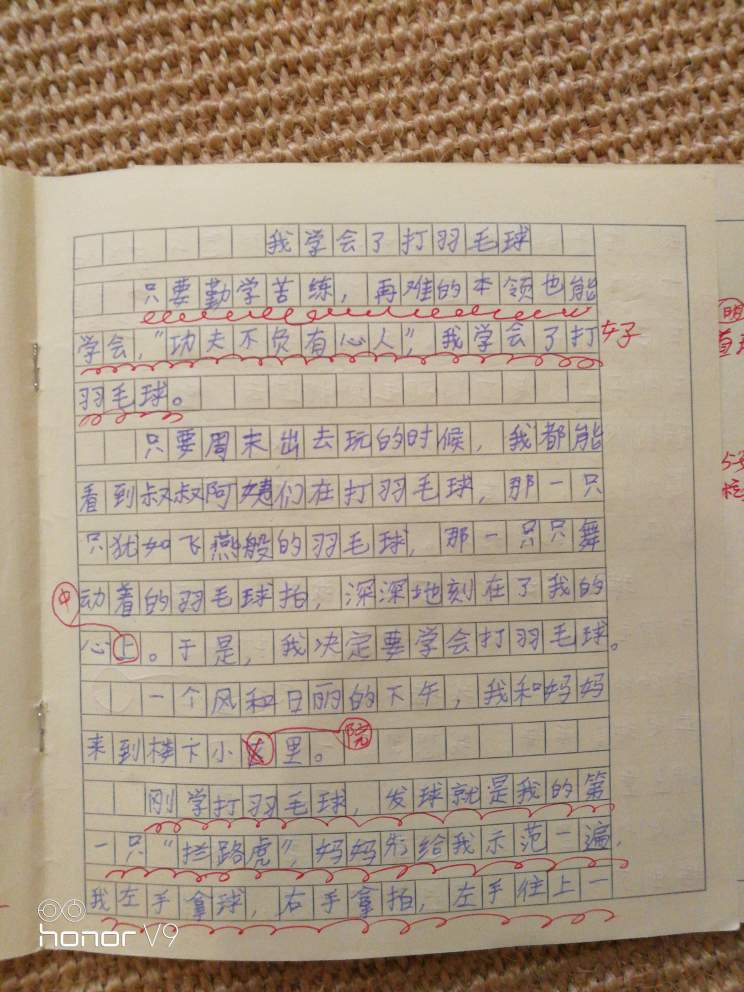 我学会了打羽毛球
只要勤学苦练，再难的本领也能
学会，“功夫不负有心人”，我学会了打 好
羽毛球。
只要周末出去玩的时候，我都能
看到叔叔阿姨们在打羽毛球，那一只
只犹如飞燕般的羽毛球，那一只只舞
中 动着的羽毛球拍，深深地刻在了我的
心上。于是，我决定要学会打羽毛球。
一个风和日丽的下午，我和妈妈
来到楼下小里。 院
刚学打羽毛球，发球就是我的第
一只“拦路虎”，妈妈先给我示范一遍，
我左手拿球，右手拿拍，左手往上一
honor V9